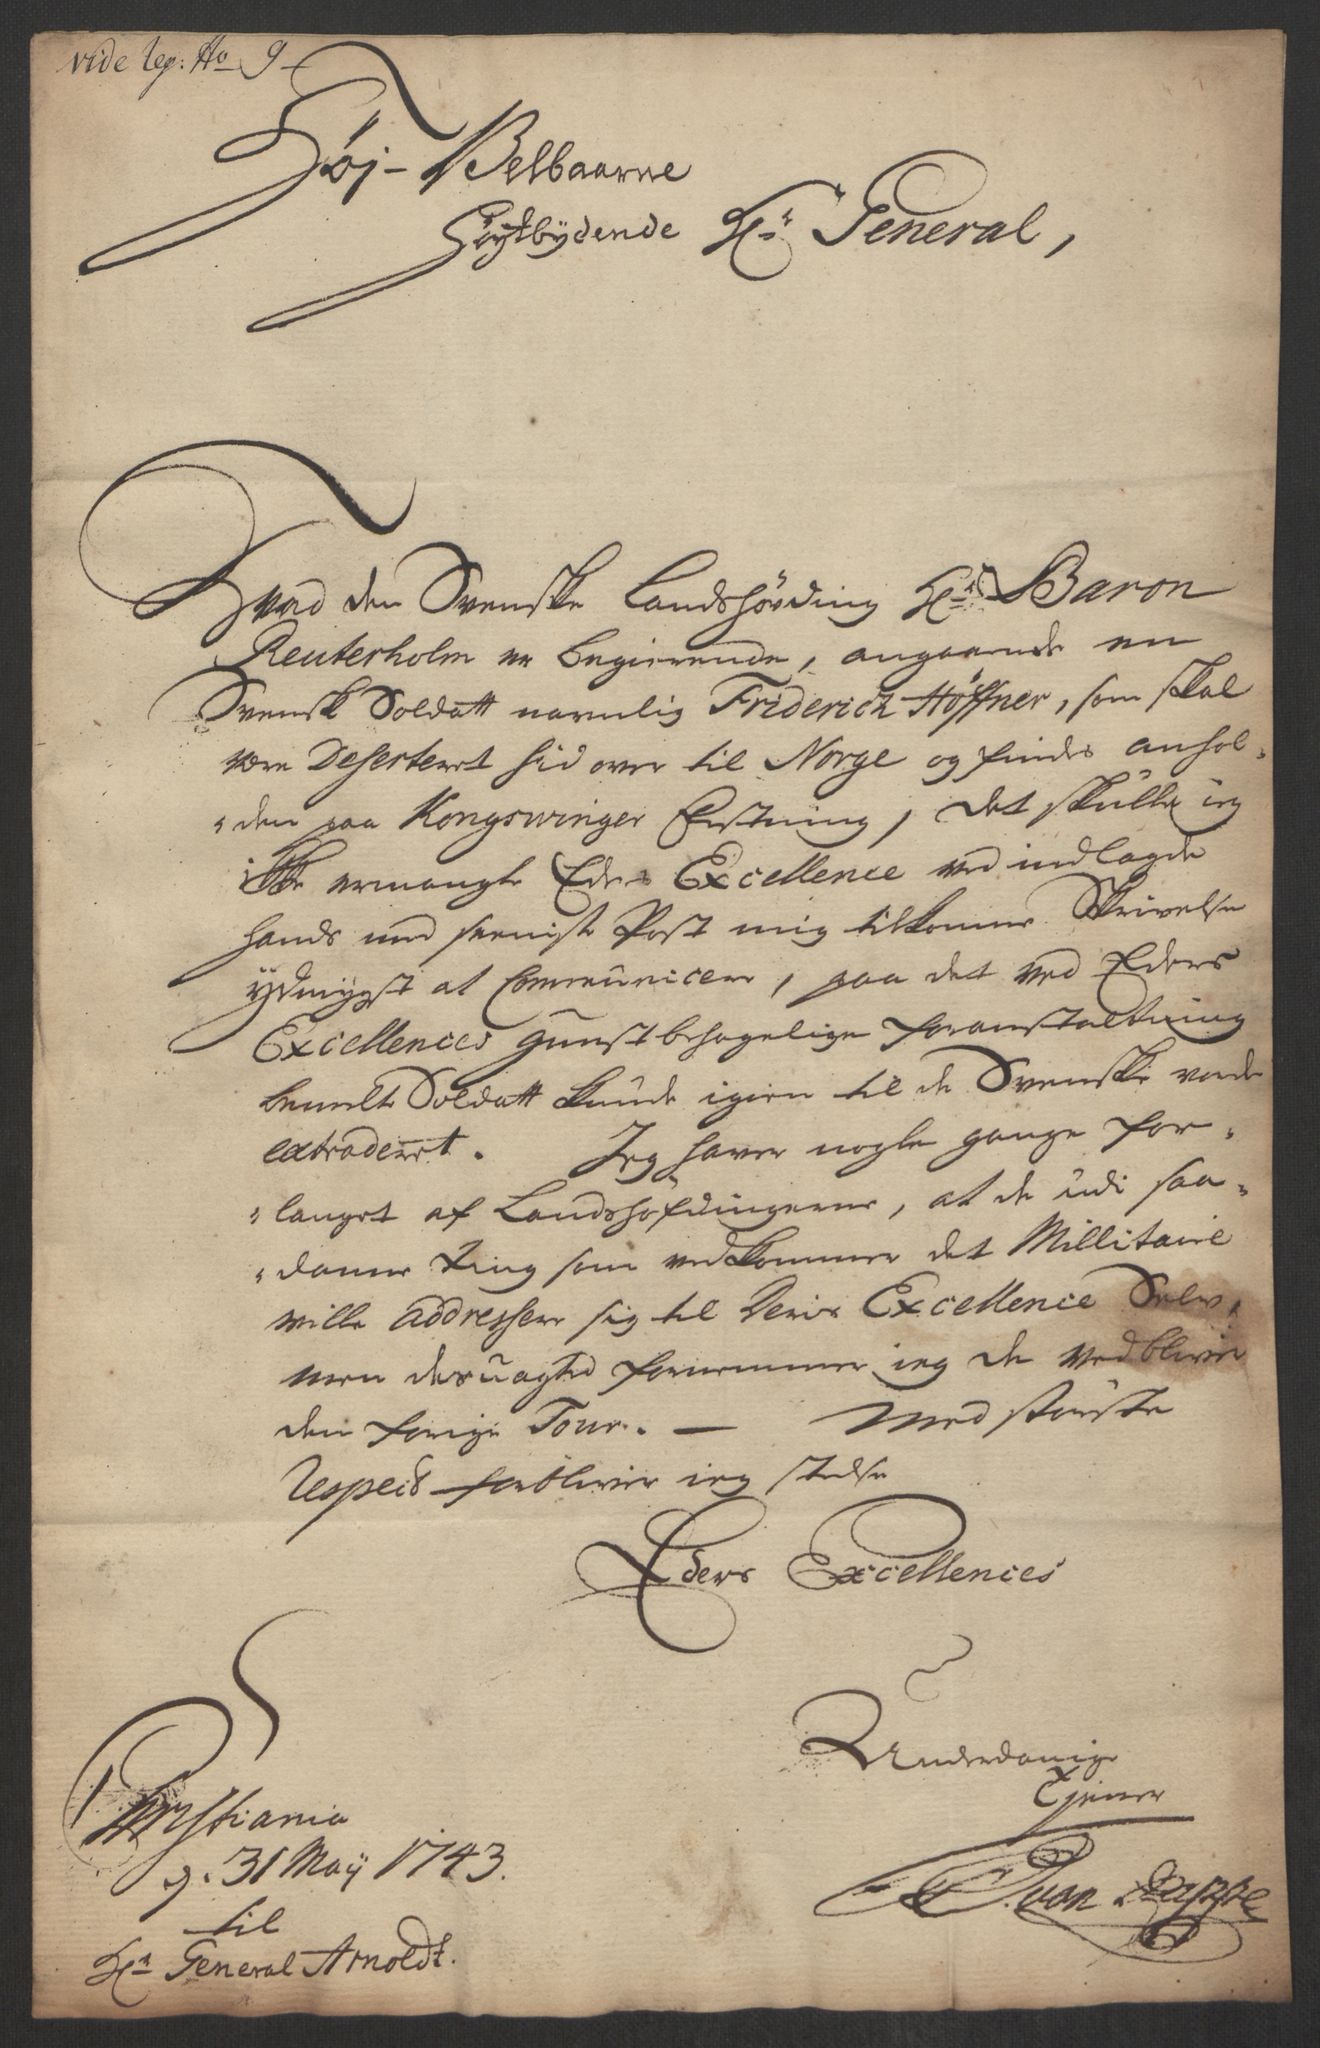 vide leg: No 9
Høj-Velbaarne
Høÿtbÿdende Hr. General,
Hvad den Svenske Landshøvding Hr. Baron
Reuterholm er begierende, angaaende en
Svensk Soldatt navnlig Friderich Höffner, som skal
være Deserteret hid over til Norge og findes anhol-
-den paa Kongswinger Festning, det skulle ieg
ikke ermangle Eders Excellence ved indlagde
hands med seeniste Post mig tilkomne Skrivelse
ÿdmÿgst at Communicere, paa det ved Eders
Excellences gunstbehagelige foranstaltning
bemelte Soldatt kunde igien til de Svenske vorde
extraderet. Jeg haver nogle gange for-
-langet af Landshøfdingerne, at de udi saa-
-danne ting som vedkommer det Millitaire
ville addressere sig til Deris Excellence Selv,
men desuagted fornemmer ieg de vedbliver
den forige Tour. — Med største
Respect forbliver ieg stedse
Eders Excellences
Underdanige
Tjener
Christiania
d. 31 Maÿ 1743.
til
Hr. General Arnoldt.